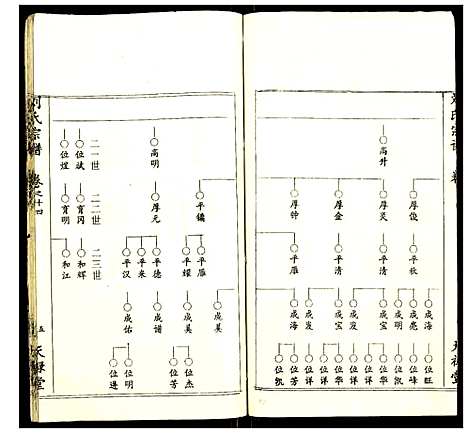 高升
厚俊
厚炎
厚金
厚钟
平秋
平清
平清
平雁
成海
成亮
成明
成宝
成发
成宝
成发
成海
位旺
位峰
位凯
位华
位祥
位华
位祥
位祥
位芳
位凯
刘氏宗谱
卷之十四
五
天禄堂
高明
平镛
厚元
平雁
平耀
平德
平来
平汉
成昊
成昊
成谱
成佑
位杰
位芳
位明
位进
二一世
二二世
二三世
位斌
位煌
育冈
育明
和辉
和江